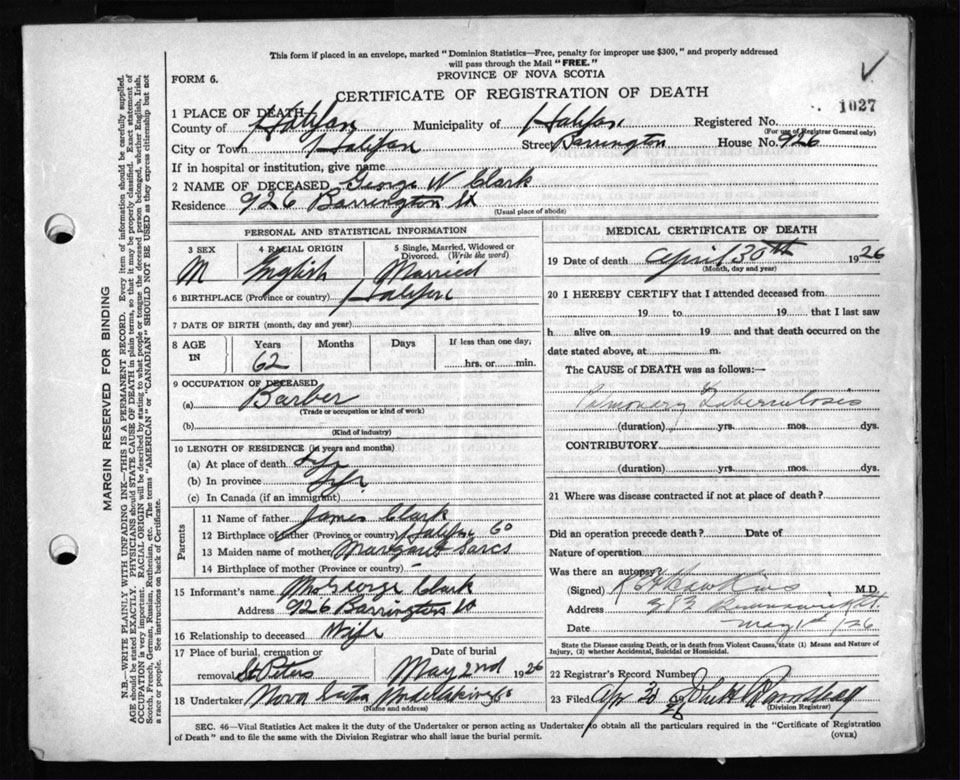 This form if placed in an envelope, marked "Dominion Statistics—Free, penalty for improper use $300," and properly addressed
will pass through the Mail "FREE."
FORM 6.
PROVINCE OF NOVA SCOTIA
CERTIFICATE OF REGISTRATION OF DEATH
1027
1 PLACE OF DEATH
County of Halifax Municipality of Halifax Registered No.
(For use of Registrar General only)
City or Town Halifax Street Barrington House No. 926
If in hospital or institution, give name
2 NAME OF DECEASED George W Clark
Residence 926 Barrington St
(Usual place of abode)
PERSONAL AND STATISTICAL INFORMATION
3 SEX 4 RACIAL ORIGIN 5 Single, Married, Widowed or Divorced. (Write the word)
M English Married
6 BIRTHPLACE (Province or country) Halifax
7 DATE OF BIRTH (month, day and year)
8 AGE IN Years Months Days If less than one day,
62 hrs. or min.
9 OCCUPATION OF DECEASED
(a) Barber
(Trade or occupation or kind of work)
(b)
(Kind of industry)
10 LENGTH OF RESIDENCE (in years and months)
(a) At place of death life
(b) In province life
(c) In Canada (if an immigrant)
Parents
11 Name of father James Clark
12 Birthplace of father (Province or country) Halifax Co
13 Maiden name of mother Margaret
14 Birthplace of mother (Province or country) -
15 Informant's name Mrs George Clark
Address 926 Barrington St
16 Relationship to deceased Wife
17 Place of burial, cremation or removal Date of burial
St Peters May 2nd 1926
18 Undertaker Nova Scotia Undertaking Co
(Name and address)
MEDICAL CERTIFICATE OF DEATH
19 Date of death April 30th 1926
(Month, day and year)
20 I HEREBY CERTIFY that I attended deceased from
19 to 19 that I last saw
h alive on 19 and that death occurred on the
date stated above, at m.
The CAUSE of DEATH was as follows:—
Pulmonary Tuberculosis
(duration) yrs. mos. dys.
CONTRIBUTORY
(duration) yrs. mos. dys.
21 Where was disease contracted if not at place of death?
Did an operation precede death? Date of
Nature of operation
Was there an autopsy?
(Signed) Hawkins M.D.
Address 383 Brunswick St.
Date May 1st /26
State the Disease causing Death, or in death from Violent Causes, state (1) Means and Nature of
Injury, (2) whether Accidental, Suicidal or Homicidal.
22 Registrar's Record Number
23 Filed Apr 30 1926
(Division Registrar)
SEC. 46—Vital Statistics Act makes it the duty of the Undertaker or person acting as Undertaker to obtain all the particulars required in the "Certificate of Registration
of Death" and to file the same with the Division Registrar who shall issue the burial permit.
(OVER)
MARGIN RESERVED FOR BINDING
N.B.—WRITE PLAINLY WITH UNFADING INK—THIS IS A PERMANENT RECORD. Every item of information should be carefully supplied.
AGE should be stated EXACTLY. PHYSICIANS should STATE CAUSE OF DEATH in plain terms, so that it may be properly classified. Exact statement of
OCCUPATION is very important. RACIAL ORIGIN will be described by stating to what people or tongue the deceased person belonged, whether English, Irish,
Scotch, French, German, Russian, Ruthenian, etc. The terms "AMERICAN" or "CANADIAN" SHOULD NOT BE USED as they express citizenship but not
a race or people. See instructions on back of Certificate.